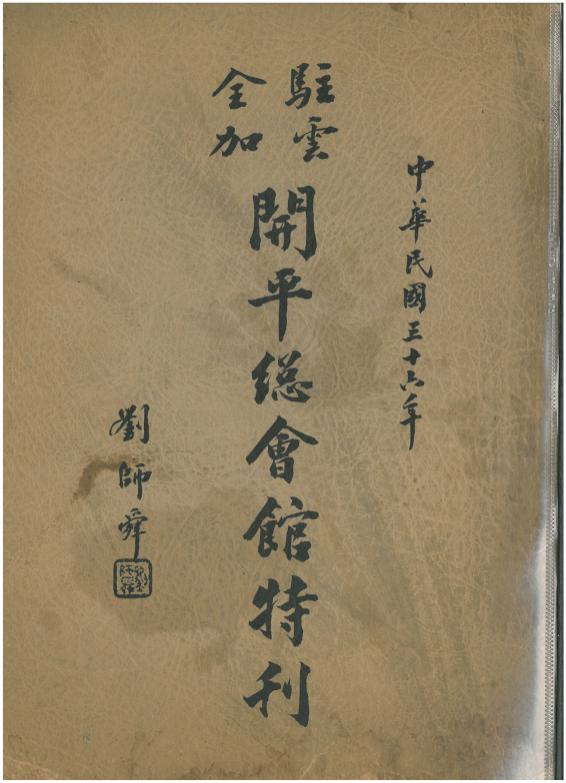 中華民國三十六年
駐雲
全加
開平總會館特刊
劉師舜